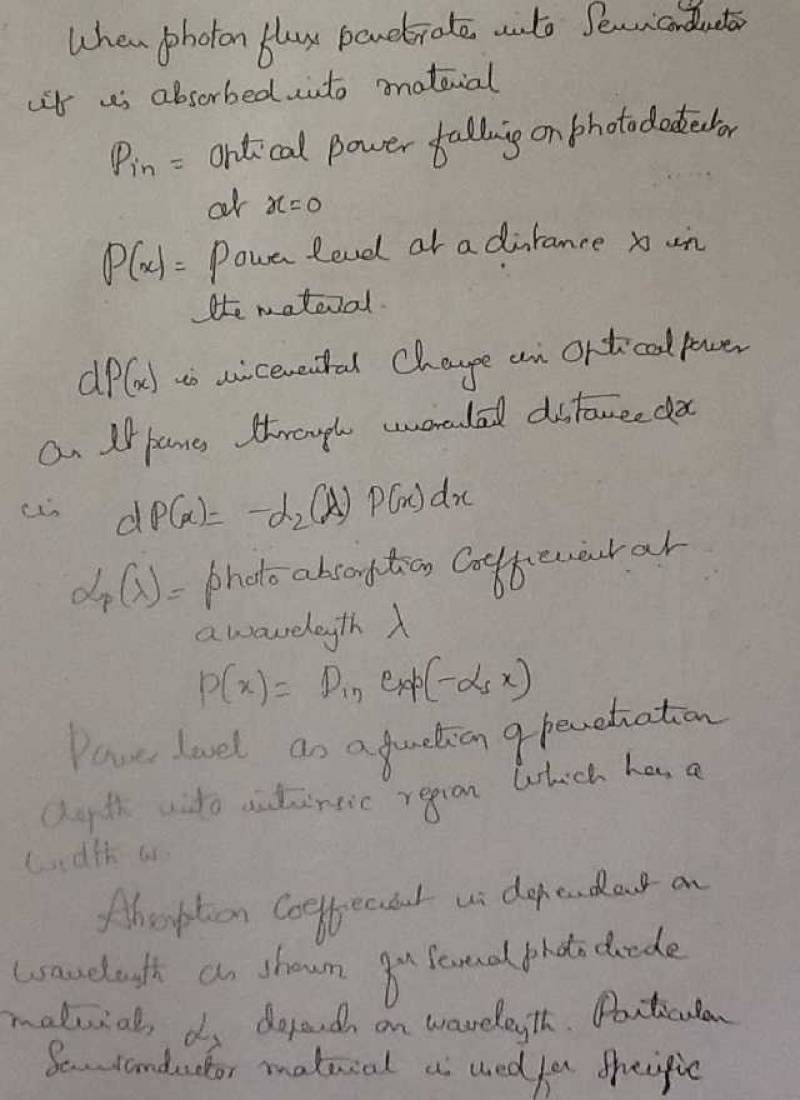 When photon flux penetrates into Semiconductor
it is absorbed into material
Pin = optical power falling on photodetector
at x=0
P(x) = Power level at a distance x in
the material.
dP(x) is incremental Change in optical power
as It passes through distance dx
is dP(x) = -α₂(λ) P(x) dx
αp(λ) = photo absorption Coefficient at
a wavelength λ
P(x) = Pin exp(-αs x)
Power level as a function of penetration
depth into intrinsic region which has a
width w.
Absorption Coefficient is dependent on
wavelength as shown for several photo diode
materials αλ depends on wavelength. Particular
Semiconductor material is used for specific